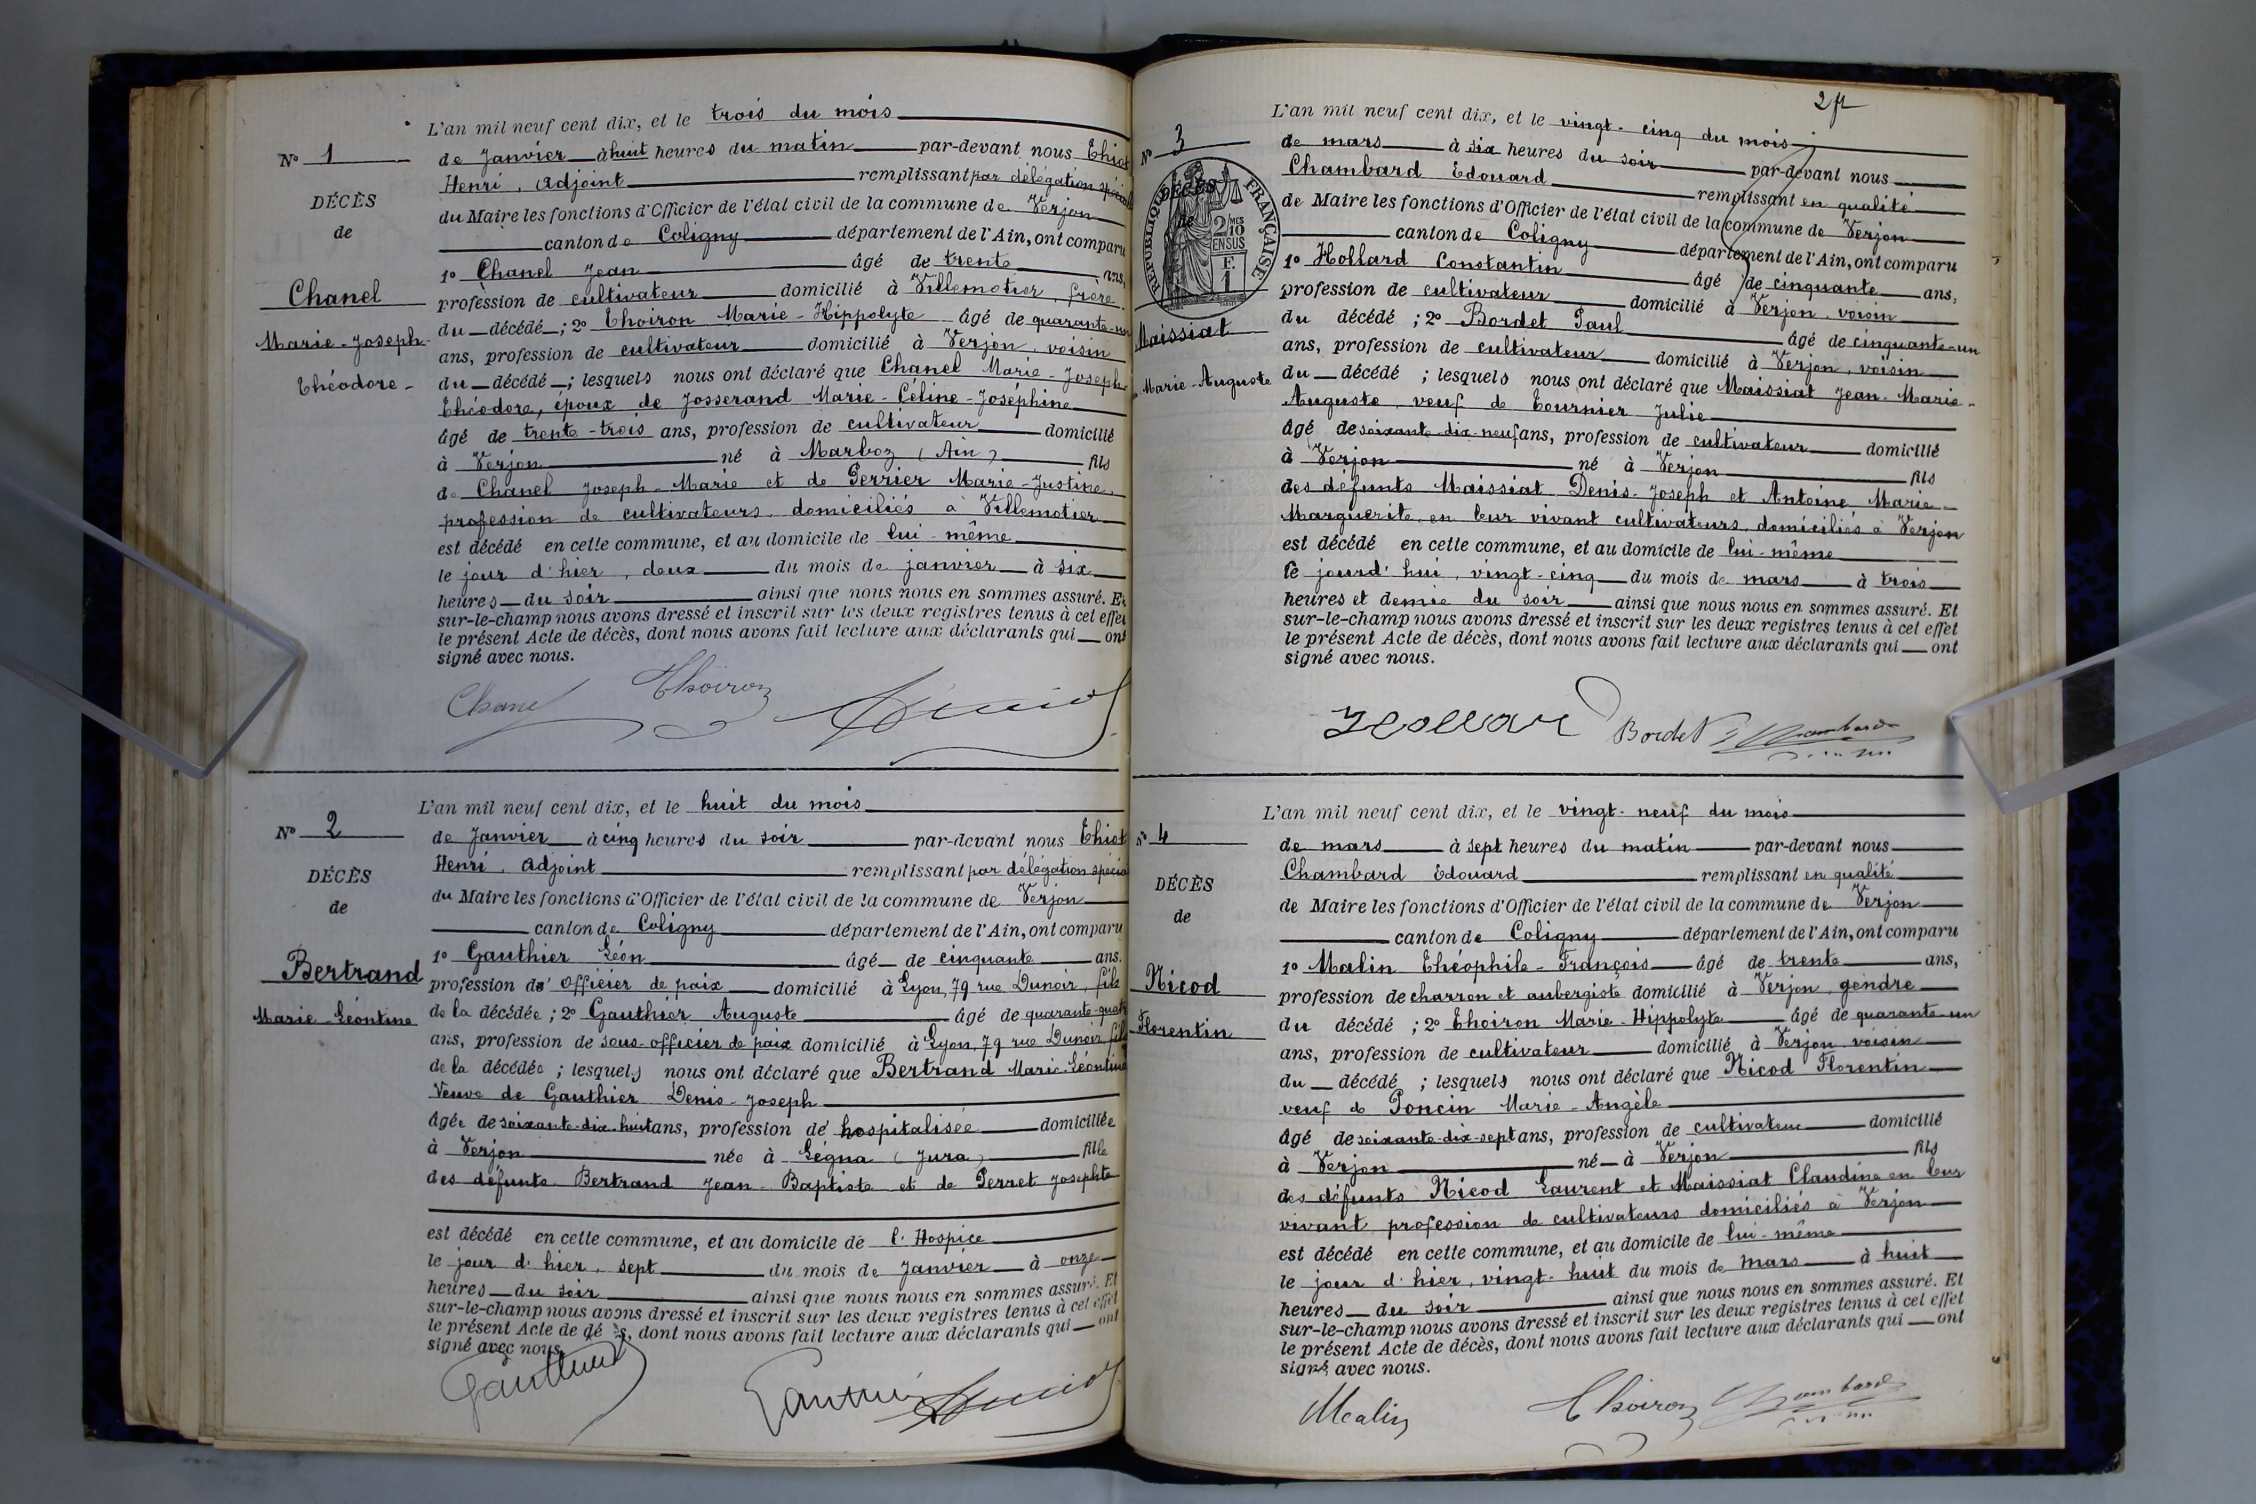 L'an mil neuf cent dix, et le trois du mois
N° 1
de Janvier à huit heures du matin par-devant nous Thiot
Henri, Adjoint remplissant par délégation spéciale
DÉCÈS
du Maire les fonctions d'Officier de l'état civil de la commune de Verjon
de
canton de Coligny département de l'Ain, ont comparu
1° Chanel Jean âgé de trente ans,
Chanel
profession de cultivateur domicilié à Villemotier, frère
Marie-Joseph-
du décédé; 2° Thoiron Marie-Hippolyte âgé de quarante-un
ans, profession de cultivateur domicilié à Verjon, voisin
Théodore-
du décédé; lesquels nous ont déclaré que Chanel Marie-Joseph
Théodore, époux de Josserand Marie-Céline-Joséphine
âgé de trente-trois ans, profession de cultivateur domicilié
à Verjon né à Marboz (Ain) fils
de Chanel Joseph-Marie et de Perrier Marie-Justine,
profession de cultivateurs, domiciliés à Villemotier
est décédé en cette commune, et au domicile de lui-même
le jour d'hier, deux du mois de janvier à six
heures du soir ainsi que nous nous en sommes assuré. Et
sur-le-champ nous avons dressé et inscrit sur les deux registres tenus à cet effet
le présent Acte de décès, dont nous avons fait lecture aux déclarants qui ont
signé avec nous.
Chanel Thoiron
L'an mil neuf cent dix, et le huit du mois
N° 2
de Janvier à cinq heures du soir par-devant nous Thiot
Henri, Adjoint remplissant par délégation spécia
DÉCÈS
du Maire les fonctions d'Officier de l'état civil de la commune de Verjon
de
canton de Coligny département de l'Ain, ont comparu
1° Gauthier Léon âgé de cinquante ans,
Bertrand
profession d' Officier de paix domicilié à Lyon, 79 rue Dunoir, fils
Marie-Léontine
de la décédée; 2° Gauthier Auguste âgé de quarante-quatr
ans, profession de sous-officier de paix domicilié à Lyon, 79 rue Dunoir fils
de la décédée; lesquels nous ont déclaré que Bertrand Marie-Léontine
Veuve de Gauthier Denis-Joseph
âgée de soixante-dix-huit ans, profession de hospitalisée domiciliée
à Verjon née à Légna (Jura) fille
des défunts Bertrand Jean-Baptiste et de Perret Josephte
est décédé en cette commune, et au domicile de l'Hospice
le jour d'hier, sept du mois de Janvier à onze
heures du soir ainsi que nous nous en sommes assuré. Et
sur-le-champ nous avons dressé et inscrit sur les deux registres tenus à cet effet
le présent Acte de dé s, dont nous avons fait lecture aux déclarants qui ont
signé avec nous.
Gauthier Gauthier
2
L'an mil neuf cent dix, et le vingt-cinq du mois
N° 3
de mars à six heures du soir par-devant nous
Chambard Edouard remplissant en qualité
DÉCÈS
de Maire les fonctions d'Officier de l'état civil de la commune de Verjon
de
RÉPUBLIQUE FRANÇAISE
2/10 MES
EN SUS
F.
1
canton de Coligny département de l'Ain, ont comparu
1° Hollard Constantin âgé de cinquante ans,
profession de cultivateur domicilié à Verjon, voisin
Maissiat
du décédé; 2° Bordet Paul âgé de cinquante-un
ans, profession de cultivateur domicilié à Verjon, voisin
Marie-Auguste
du décédé; lesquels nous ont déclaré que Maissiat Jean-Marie-
Auguste, veuf de Tournier Julie
âgé de soixante-dix-neuf ans, profession de cultivateur domicilié
à Verjon né à Verjon fils
des défunts Maissiat Denis-Joseph et Antoine Marie-
Marguerite, en leur vivant cultivateurs, domiciliés à Verjon
est décédé en cette commune, et au domicile de lui-même
le jourd'hui, vingt-cinq du mois de mars à trois
heures et demie du soir ainsi que nous nous en sommes assuré. Et
sur-le-champ nous avons dressé et inscrit sur les deux registres tenus à cet effet
le présent Acte de décès, dont nous avons fait lecture aux déclarants qui ont
signé avec nous.
Hollard Bordet Chambard
L'an mil neuf cent dix, et le vingt-neuf du mois
N° 4
de mars à sept heures du matin par-devant nous
Chambard Edouard remplissant en qualité
DÉCÈS
de Maire les fonctions d'Officier de l'état civil de la commune de Verjon
de
canton de Coligny département de l'Ain, ont comparu
1° Malin Théophile-François âgé de trente ans,
Nicod
profession de charron et aubergiste domicilié à Verjon, gendre
Florentin
du décédé; 2° Thoiron Marie-Hippolyte âgé de quarante-un
ans, profession de cultivateur domicilié à Verjon voisin
du décédé; lesquels nous ont déclaré que Nicod Florentin
veuf de Poncin Marie-Angèle
âgé de soixante-dix-sept ans, profession de cultivateur domicilié
à Verjon né à Verjon fils
des défunts Nicod Laurent et Maissiat Claudine en leur
vivant profession de cultivateurs domiciliés à Verjon
est décédé en cette commune, et au domicile de lui-même
le jour d'hier, vingt-huit du mois de mars à huit
heures du soir ainsi que nous nous en sommes assuré. Et
sur-le-champ nous avons dressé et inscrit sur les deux registres tenus à cet effet
le présent Acte de décès, dont nous avons fait lecture aux déclarants qui ont
signé avec nous.
Malin Thoiron Chambard